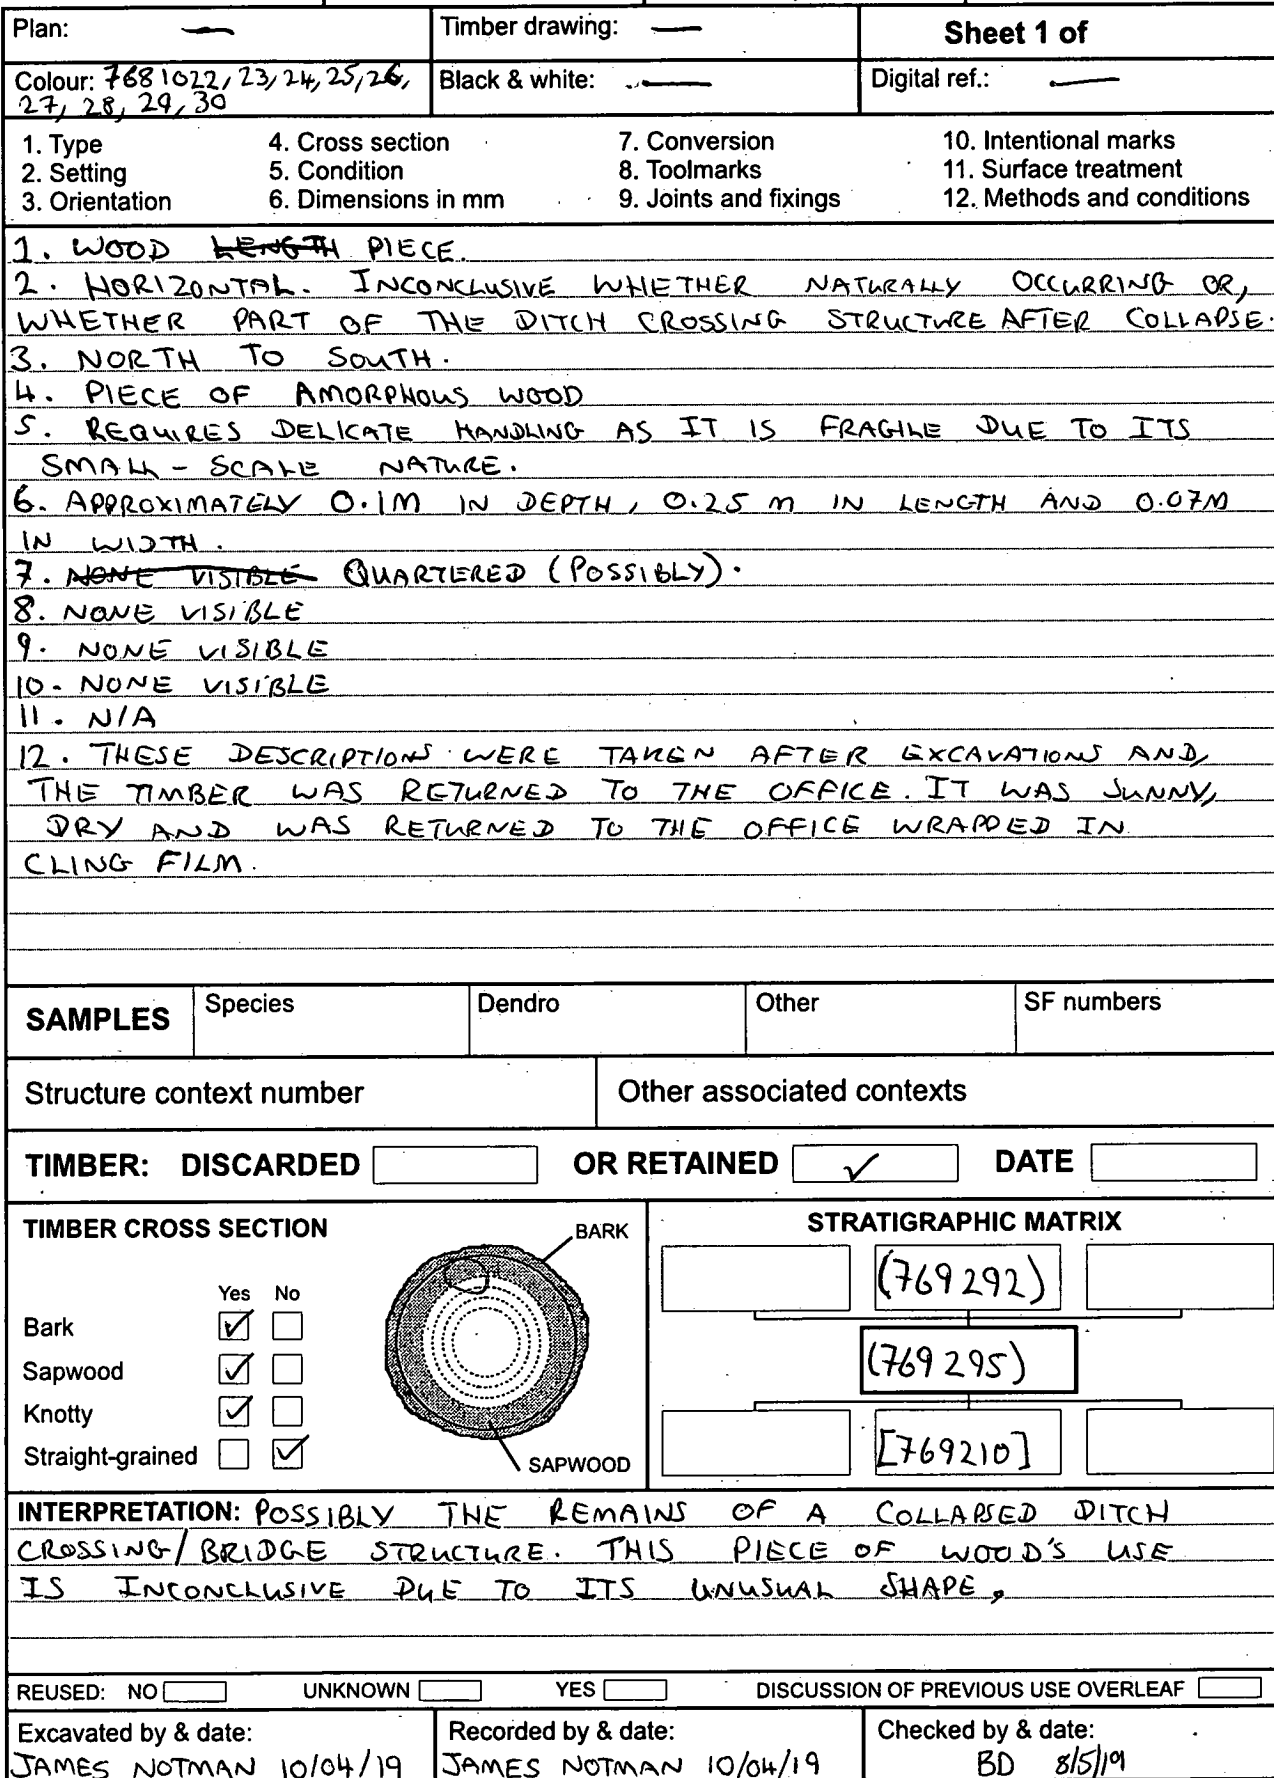 Plan: —
Timber drawing: —
Sheet 1 of
Colour: 7681022, 23, 24, 25, 26,
27, 28, 29, 30
Black & white: —
Digital ref.: —
1. Type
2. Setting
3. Orientation
4. Cross section
5. Condition
6. Dimensions in mm
7. Conversion
8. Toolmarks
9. Joints and fixings
10. Intentional marks
11. Surface treatment
12. Methods and conditions
1. WOOD LENGTH PIECE.
2. HORIZONTAL. INCONCLUSIVE WHETHER NATURALLY OCCURRING OR,
WHETHER PART OF THE DITCH CROSSING STRUCTURE AFTER COLLAPSE.
3. NORTH TO SOUTH.
4. PIECE OF AMORPHOUS WOOD
5. REQUIRES DELICATE HANDLING AS IT IS FRAGILE DUE TO ITS
SMALL-SCALE NATURE.
6. APPROXIMATELY 0.1M IN DEPTH, 0.25 M IN LENGTH AND 0.07M
IN WIDTH.
7. NONE VISIBLE QUARTERED (POSSIBLY).
8. NONE VISIBLE
9. NONE VISIBLE
10. NONE VISIBLE
11. N/A
12. THESE DESCRIPTIONS WERE TAKEN AFTER EXCAVATIONS AND,
THE TIMBER WAS RETURNED TO THE OFFICE. IT WAS SUNNY,
DRY AND WAS RETURNED TO THE OFFICE WRAPPED IN
CLING FILM.
SAMPLES
Species
Dendro
Other
SF numbers
Structure context number
Other associated contexts
TIMBER: DISCARDED
OR RETAINED ✓
DATE
TIMBER CROSS SECTION
Yes No
Bark ✓
Sapwood ✓
Knotty ✓
Straight-grained ✓
BARK
SAPWOOD
STRATIGRAPHIC MATRIX
(769292)
(769295)
[769210]
INTERPRETATION: POSSIBLY THE REMAINS OF A COLLAPSED DITCH
CROSSING/BRIDGE STRUCTURE. THIS PIECE OF WOOD'S USE
IS INCONCLUSIVE DUE TO ITS UNUSUAL SHAPE.
REUSED: NO UNKNOWN YES DISCUSSION OF PREVIOUS USE OVERLEAF
Excavated by & date:
JAMES NOTMAN 10/04/19
Recorded by & date:
JAMES NOTMAN 10/04/19
Checked by & date:
BD 8/5/19